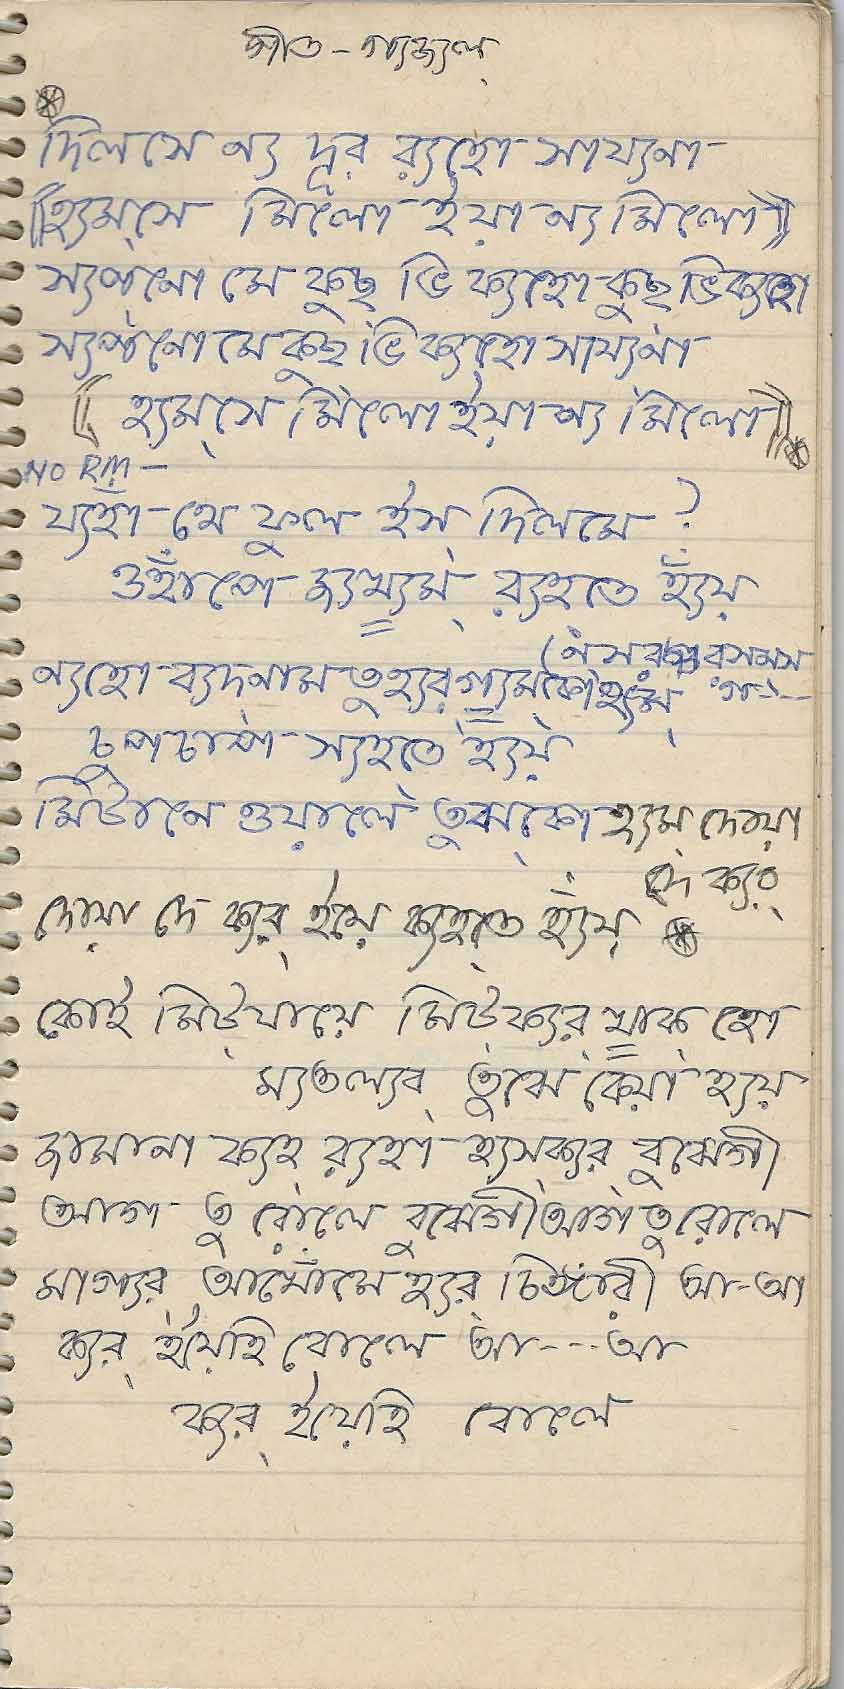 গীত - গ্যজ্যল্
দিলসে ন্য দূর র‍্যহো সায্যনা
((হ্যম্সে মিলো ইয়া ন্য মিলো))
স্যপনো মে কুছ ভি ক্যহো কুছ ভি ক্যহো
স্যপনো মে কুছ ভি ক্যহো সায্যনা
(( হ্যম্সে মিলো ইয়া ন্য মিলো))
NO RM -
য্যহাঁ থে ফুল ইস্ দিলমে ?
ওহাঁপে জ্যখ্যম্ র‍্যহতে হ্যঁয়
ন্যহো ব্যদনাম তু হ্যর গ্যমকো হ্যম্
চুপচাপ স্যহতে হ্যঁয়
মিটানে ওয়ালে তুঝকো হ্যম্ দোয়া
দে ক্যর্
দোয়া দে ক্যর্ ইয়ে ক্যহতে হ্যঁয়
কোই মিট্ যায়ে মিট্ ক্যর্ খাক্ হো
ম্যতল্যব্ তুঝে কেয়া হ্যয়
জামানা ক্যহ্ র‍্যহা হ্যস্ক্যর্ বুঝেগী
আগ তু রোলে বুঝেগী আগ তু রোলে
মাগ্যর্ আখোঁমে হ্যর্ চিঙ্গারী আ-আ
ক্যর্ ইয়েহি বোলে আ---আ
ক্যর্ ইয়েহি বোলে